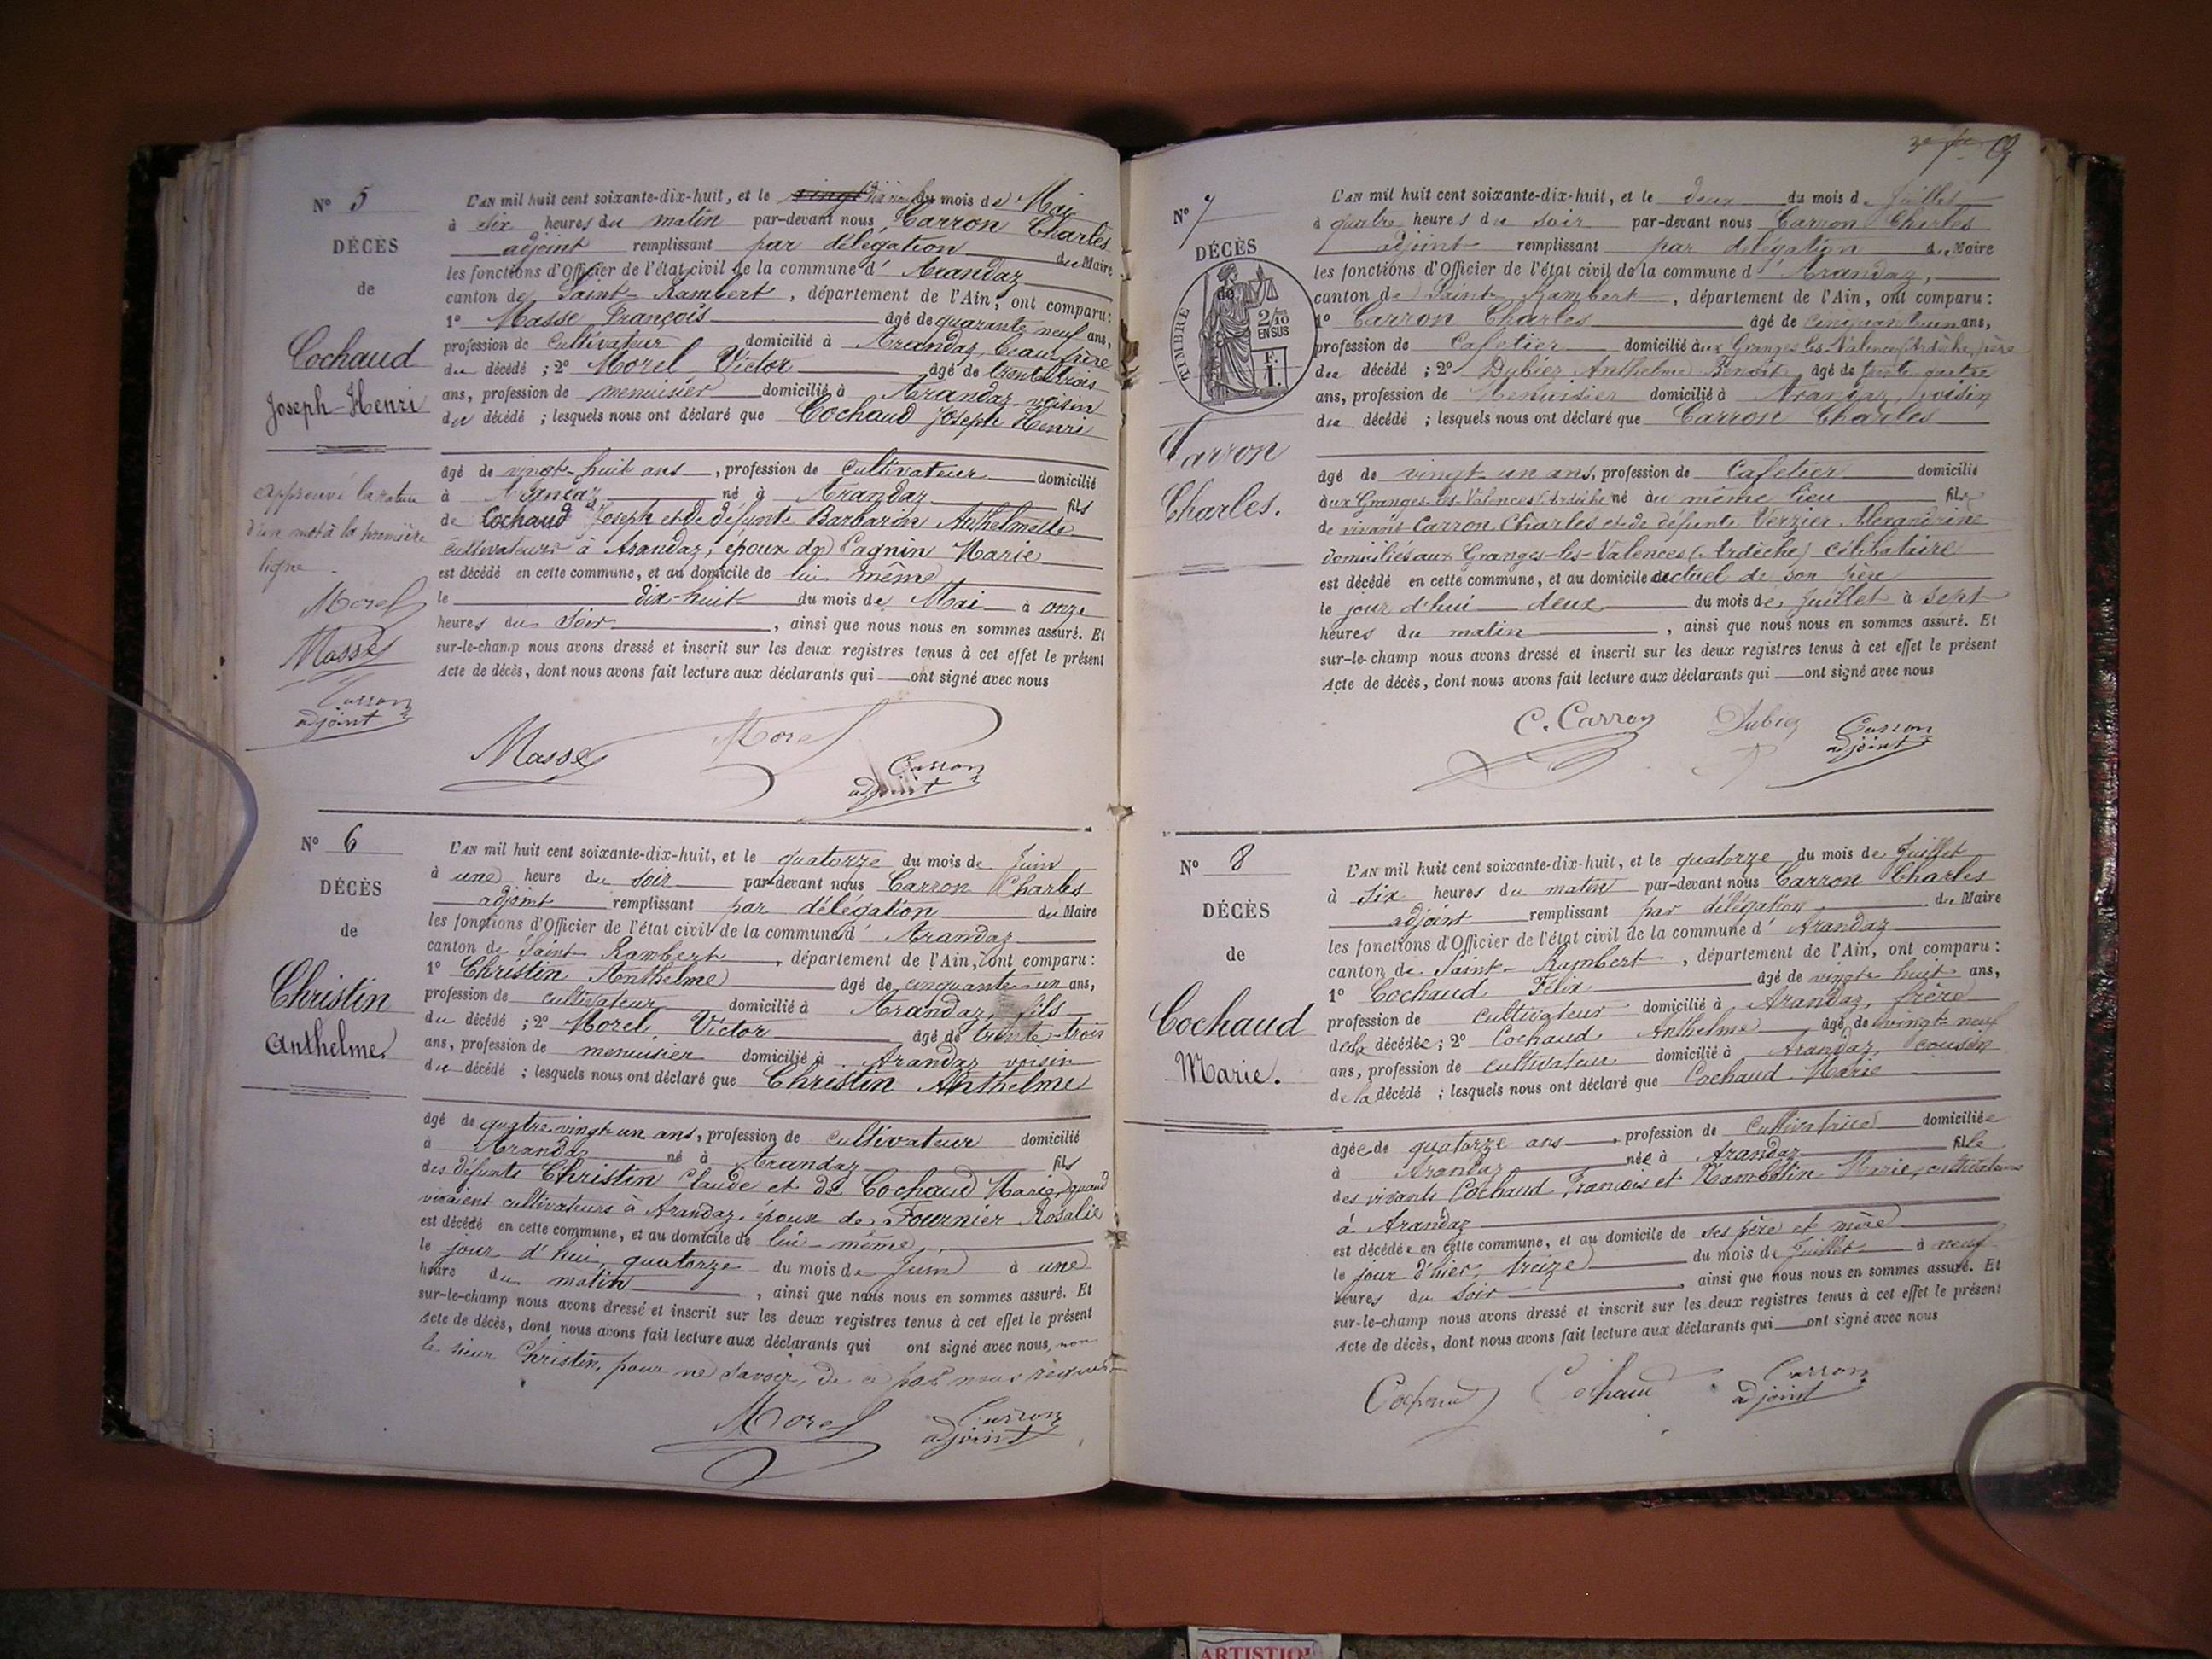 N° 5
DÉCÈS
de
Cochaud
Joseph Henri
L'AN mil huit cent soixante-dix-huit, et le vingt du mois de Mai
à six heures du matin par-devant nous Carron Charles
adjoint remplissant par délégation du Maire
les fonctions d'Officier de l'état civil de la commune d' Arandaz
canton de Saint-Rambert, département de l'Ain, ont comparu:
1° Masse François âgé de quarante neuf ans,
profession de Cultivateur domicilié à Arandaz, beau frère
du décédé ; 2° Morel Victor âgé de trente trois
ans, profession de menuisier domicilié à Arandaz voisin
du décédé ; lesquels nous ont déclaré que Cochaud Joseph Henri
âgé de vingt-huit ans, profession de Cultivateur domicilié
à Arandaz né à Arandaz fils
de Cochaud Joseph et de défunte Barbarin Anthelmette
cultivateurs à Arandaz, époux de Pagnin Marie
est décédé en cette commune, et au domicile de lui même
le dix-huit du mois de Mai à onze
heures du Soir, ainsi que nous nous en sommes assuré. Et
sur-le-champ nous avons dressé et inscrit sur les deux registres tenus à cet effet le présent
Acte de décès, dont nous avons fait lecture aux déclarants qui ont signé avec nous
Approuvé la rature
d'un mot à la première
ligne.
Morel
Masse
Carron
adjoint
Masse Morel Carron
adjoint
N° 6
DÉCÈS
de
Christin
Anthelme
L'AN mil huit cent soixante-dix-huit, et le quatorze du mois de Juin
à une heure du soir par-devant nous Carron Charles
adjoint remplissant par délégation du Maire
les fonctions d'Officier de l'état civil de la commune d' Arandaz
canton de Saint Rambert, département de l'Ain, ont comparu:
1° Christin Anthelme âgé de cinquante un ans,
profession de cultivateur domicilié à Arandaz, fils
du décédé ; 2° Morel Victor âgé de trente-trois
ans, profession de menuisier domicilié à Arandaz voisin
du décédé ; lesquels nous ont déclaré que Christin Anthelme
âgé de quatre vingt un ans, profession de cultivateur domicilié
à Arandaz né à Arandaz fils
des défunts Christin Claude et de Cochaud Marie, quand
vivaient cultivateurs à Arandaz, époux de Fournier Rosalie
est décédé en cette commune, et au domicile de lui-même,
le jour d'hui, quatorze du mois de Juin à une
heure du matin, ainsi que nous nous en sommes assuré. Et
sur-le-champ nous avons dressé et inscrit sur les deux registres tenus à cet effet le présent
Acte de décès, dont nous avons fait lecture aux déclarants qui ont signé avec nous, non
le sieur Christin, pour ne savoir, de ce par nous requis
Morel Carron
adjoint
N° 7
DÉCÈS
de
TIMBRE
2/10
EN SUS
F.
1.
Carron
Charles.
L'AN mil huit cent soixante-dix-huit, et le deux du mois de Juillet
à quatre heures du soir par-devant nous Carron Charles
adjoint remplissant par délégation du Maire
les fonctions d'Officier de l'état civil de la commune d' Arandaz,
canton de Saint-Rambert, département de l'Ain, ont comparu:
1° Carron Charles âgé de cinquante un ans,
profession de Cafetier domicilié aux Granges les-Valence (Ardèche, père
du décédé ; 2° Dubiez Anthelme Benoit âgé de trente quatre
ans, profession de Menuisier domicilié à Arandaz, voisin
du décédé ; lesquels nous ont déclaré que Carron Charles
âgé de vingt un ans, profession de Cafetier domicilié
aux Granges-les-Valences (Ardèche né au même lieu fils
de vivant Carron Charles et de défunte Verzier Alexandrine
domiciliés aux Granges-les-Valences (Ardèche) célibataire
est décédé en cette commune, et au domicile actuel de son père
le jour d'hui deux du mois de Juillet à Sept
heures du matin, ainsi que nous nous en sommes assuré. Et
sur-le-champ nous avons dressé et inscrit sur les deux registres tenus à cet effet le présent
Acte de décès, dont nous avons fait lecture aux déclarants qui ont signé avec nous
C. Carron Dubiez Carron
adjoint
N° 8
DÉCÈS
de
Cochaud
Marie.
L'AN mil huit cent soixante-dix-huit, et le quatorze du mois de Juillet
à six heures du matin par-devant nous Carron Charles
adjoint remplissant par délégation du Maire
les fonctions d'Officier de l'état civil de la commune d' Arandaz
canton de Saint-Rambert, département de l'Ain, ont comparu:
1° Cochaud Félix âgé de vingt huit ans,
profession de cultivateur domicilié à Arandaz, frère
de la décédée ; 2° Cochaud Anthelme âgé de vingt neuf
ans, profession de cultivateur domicilié à Arandaz cousin
de la décédé ; lesquels nous ont déclaré que Cochaud Marie
âgée de quatorze ans, profession de Cultivatrice domiciliée
à Arandaz née à Arandaz fille
des vivants Cochaud François et Mambotin Marie, cultivateurs
à Arandaz
est décédée en cette commune, et au domicile de ses père et mère
le jour d'hier, treize du mois de Juillet à neuf
heures du Soir, ainsi que nous nous en sommes assuré. Et
sur-le-champ nous avons dressé et inscrit sur les deux registres tenus à cet effet le présent
Acte de décès, dont nous avons fait lecture aux déclarants qui ont signé avec nous
Cochaud Cochaud Carron
adjoint